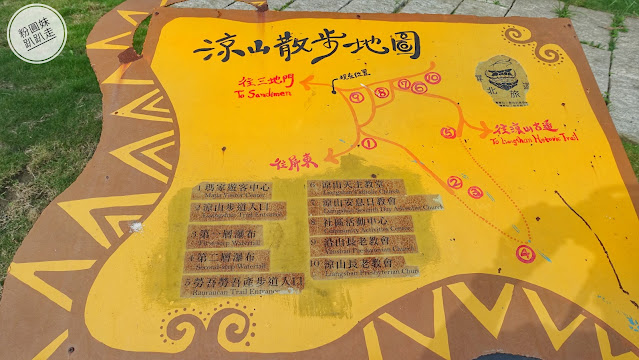 粉圓妹
趴趴走
涼山散步地圖
往三地門
To Sandimen
現在位置
9
8
7
6
10
北旅
5
往涼山古道
To Liangshan Historic Trail
往屏東
1
2
3
4
1 瑪家遊客中心
Majia Visitor Center
2 涼山步道入口
Liangshan Trail Entrance
3 第一層瀑布
First-step Waterfall
4 第二層瀑布
Second-step Waterfall
5 勞吾勞吾產步道入口
Raurauran Trail Entrance
6 涼山天主教堂
Liangshan Catholic Church
7 涼山安息日教會
Liangshan Seventh Day Adventist Church
8 社區活動中心
9 沿山長老教會
Presbyterian Church
10 涼山長老教會
Liangshan Presbyterian Church